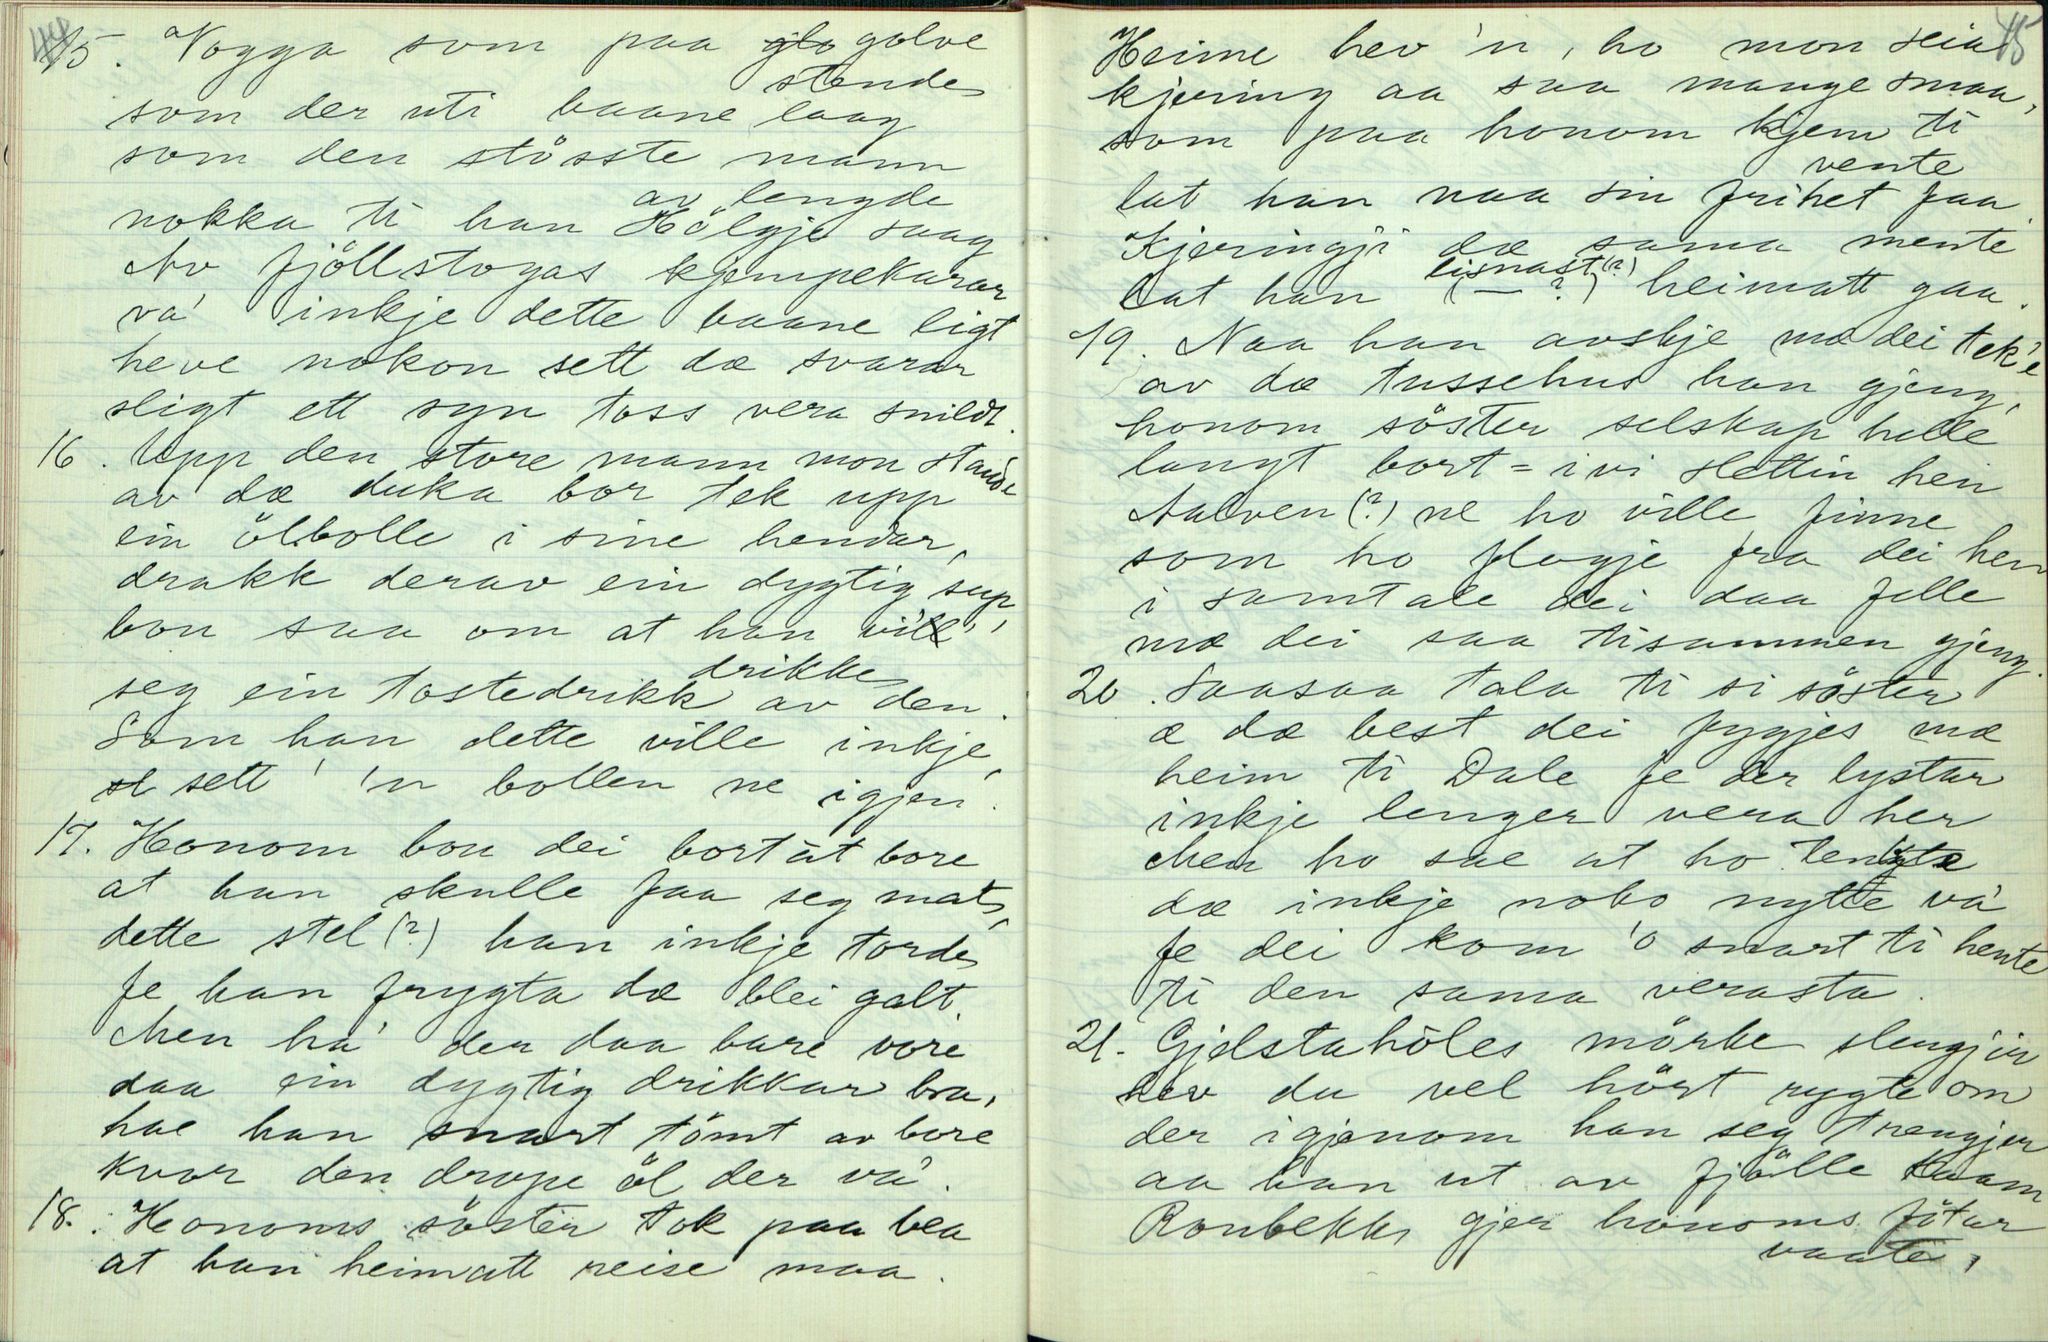 44
15. Vogga som paa glo golve
stende
som der uti baane laag
som den stösste mann
av lengde
nokka ti han Hölgje saag
Av fjöllstogas kjempekarar
va' inkje dette baane ligt
heve nokon sett dæ svarar
sligt ett syn toss vera snildt.
16. Upp den store mann mon stande
av dæ duka bor tek upp
ein ölbolle i sine hendar,
drakk derav ein dygtig sup,
bou saa om at han vill'
drikke
seg ein tostedrikk av den.
Som han dette ville inkje,
sl sett' 'n bollen ne igjen.
17. Honom bou dei bort åt bore
at han skulle faa seg mat,
dette stel (?) han inkje torde
fe han frygta dæ blei galt.
Men ha' der daa bare vore
daa ein dygtig drikkar bra,
hae han snart tömt av bore
kvar den drope öl der va'.
18. Honoms söster tok paa bea
at han heimatt reise maa.
45
Heime hev 'n, ho mon seia
kjering aa saa mange smaa,
som paa honom kjem ti
vente
lat han naa sin frihet faa.
Kjeringji dæ sama mente
lisnast (?)
Lat han (— ?) heimatt gaa.
19. Naa han avskje mæ dei tek'e
av dæ tussehus han gjeng,
honom söster selskap helle
langt bort = ivi slettin hen
Aalven (?) ne ho ville finne
som ho flogje fra dei hen
i samtale dei daa felle
mæ dei saa tisammen gjeng.
20. Saasaa tala ti si söster
æ dæ best dei fygjes mæ
heim ti Dale fe der lystar
inkje lenger vera her
Men ho sae at ho tenkte
dæ inkje noko nytte va'
fe dei kom 'o snart ti hente
ti den sama verasta.
21. Gjelstahöles mörke slengjir
hev du vel hört rygte om
der igjenom han seg trengjer
aa han ut av fjölle kaam
Ronbekki gjer honoms fötar
vaate,